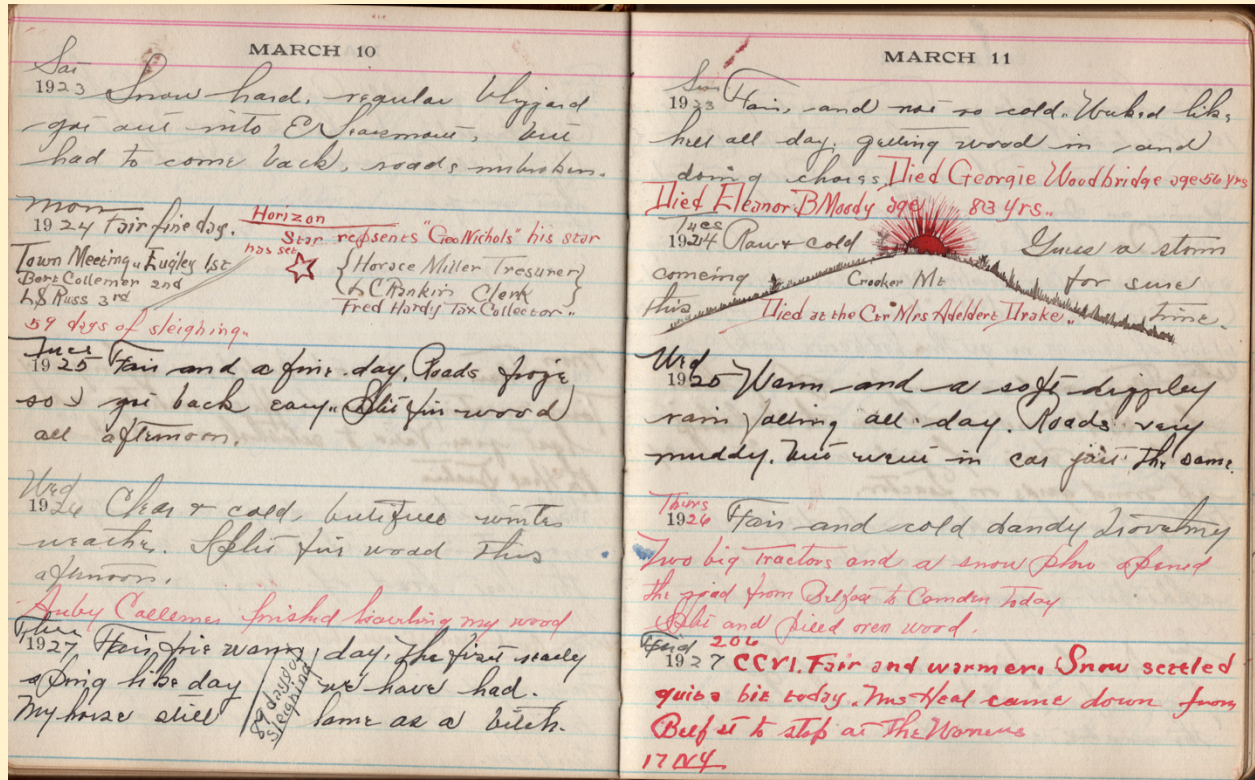 MARCH 10
Sat
1923 Snow hard, regular blizzard
got out into E Searsmont, but
had to come back, roads unbroken.
Mon
1924 Fair fine day.
Horizon
Star repsents "Geo Nichols" his star
has set
Town Meeting. Eugley 1st
Bert Collemer 2nd
LS Russ 3rd
{Horace Miller Tresurer}
{L C Rankin Clerk}
Fred Hardy Tax Collector"
59 days of sleighing.
Tues
1925 Fair and a fine day, Roads froze
so I got back easy. Split fir wood
all afternoon.
Wed
1926 Clear & cold, butifull winter
weather. Split fir wood this
afternoon.
Auby Collemer finished hauling my wood
Thur
1927 Fair, fine warm day. The first really
spring like day we have had.
My horse still lame as a bitch.
89 days of
sleighing
MARCH 11
Sun
1923 Fair, and not so cold. Worked like
hell all day, getting wood in and
doing chores. Died Georgie Woodbridge age 56 yrs
Died Eleanor B Moody age 83 yrs..
Tues
1924 Raw & cold Guess a storm
comeing Crooker Mt for sure
this Died at the Ctr Mrs Adeldert Drake.. time.
Wed
1925 Warm and a soft drippley
rain falling all day. Roads very
muddy. but went in car just the same.
Thurs
1926 Fair and cold dandy
Two big tractors and a snow plow opened
the road from Belfast to Camden today
Split and piled oren wood.
Frid 206
1927 CCVI. Fair and warmer. Snow settled
quite a bit today. Mrs Heal came down from
Belfst to stop at The Womens
17 NY